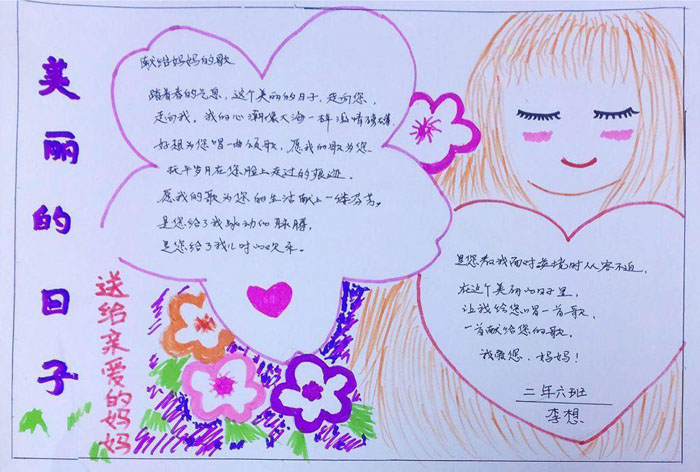 美丽的日子
送给亲爱的妈妈
献给妈妈的歌
踏着春的气息，这个美丽的日子，走向您，
走向我，我的心潮像大海一样激情磅礴
好想为您唱一曲颂歌，愿我的歌为您
抚平岁月在您脸上走过的痕迹。
愿我的歌为您的生活献上一缕芬芳。
是您给了我跳动的脉膊
是您给了我儿时的欢乐。
是您教我面对逆境时从容不迫，
在这个美丽的日子里，
让我给您唱一首歌，
一首献给您的歌。
我爱您，妈妈！
二年六班
李想